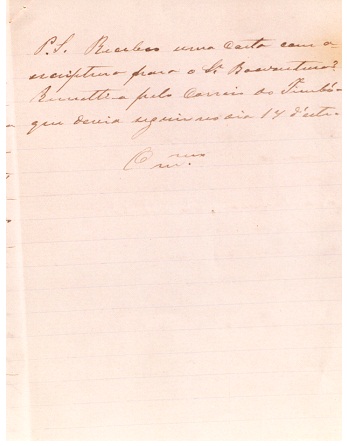 P.S. Recebeo uma carta com a
escriptura para o Sr. Boaventura?
Remetti-a pelo Correio do Timbó
que devia seguir no dia 14 d'este.